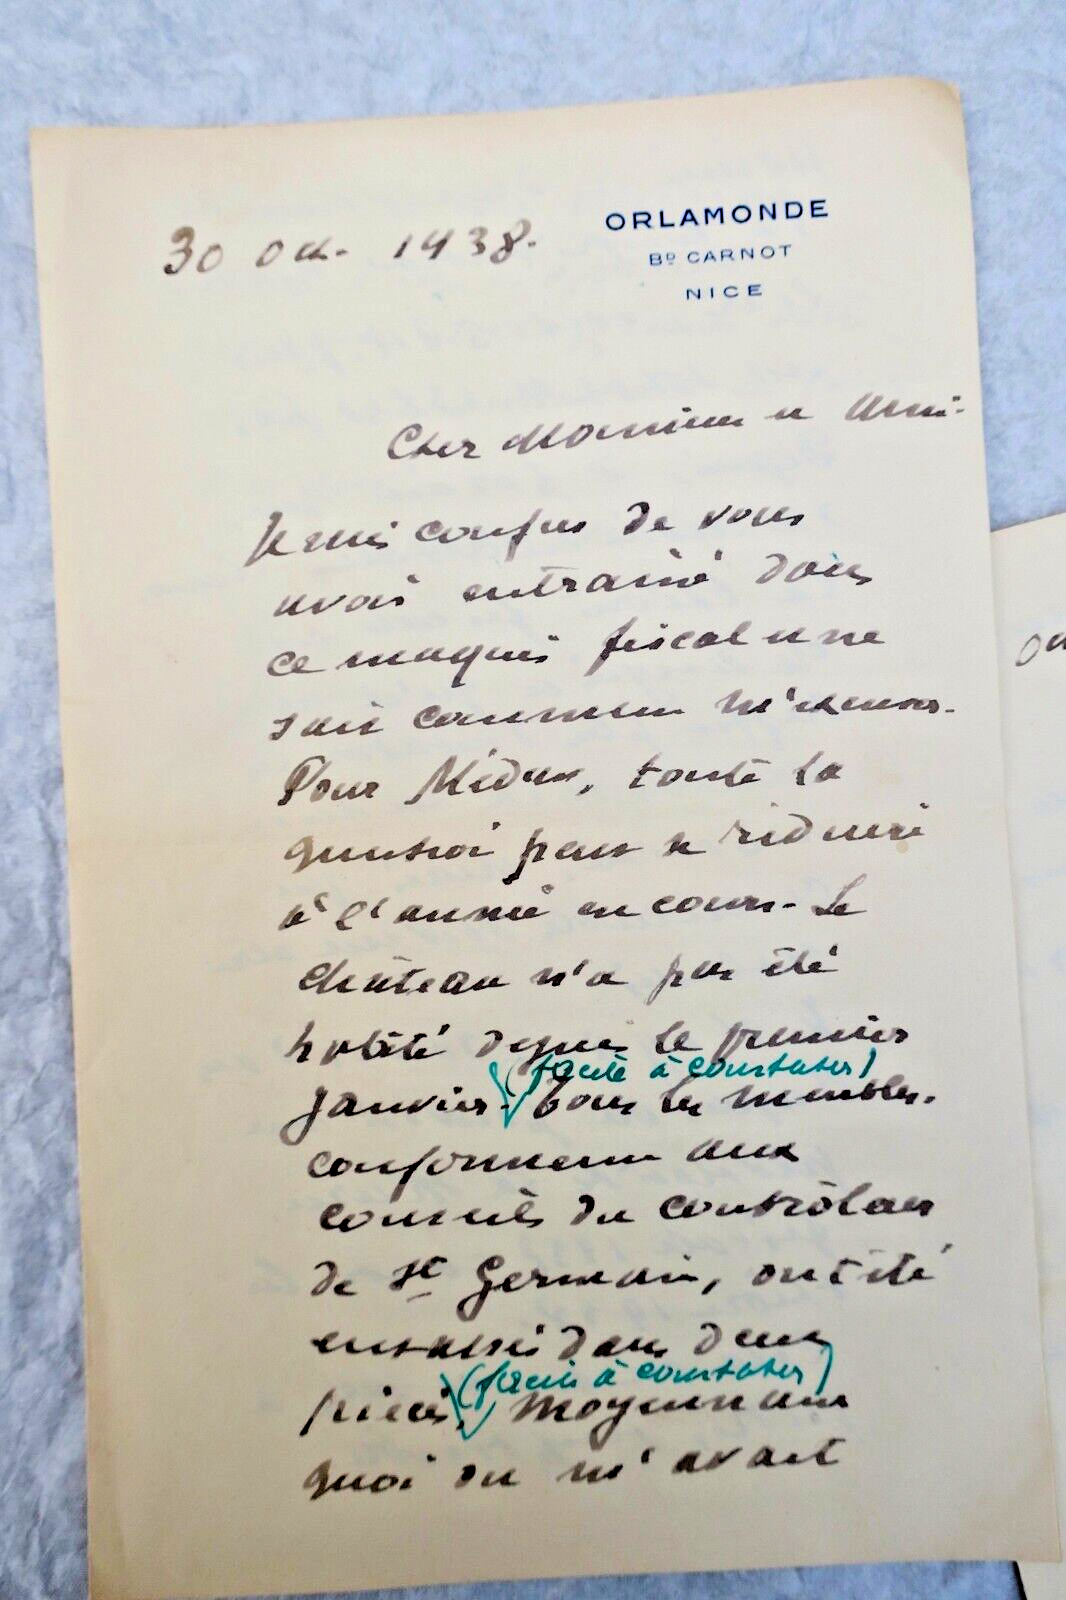 30 Oct. 1938.
ORLAMONDE
Bd CARNOT
NICE
Cher Monsieur et Ami.
Je suis confus de vous
avoir entrainé dans
ce maquis fiscal et ne
sais comment m'excuser.
Pour Médan, toute la
question peut se réduire
à l'année en cours. Le
château n'a pas été
habité depuis le premier
(facile à constater)
Janvier. Tous les meubles,
conformément aux
conseils du contrôleur
de St Germain, ont été
entassés dans deux
(facile à constater)
pièces, moyennant
quoi on m'avait